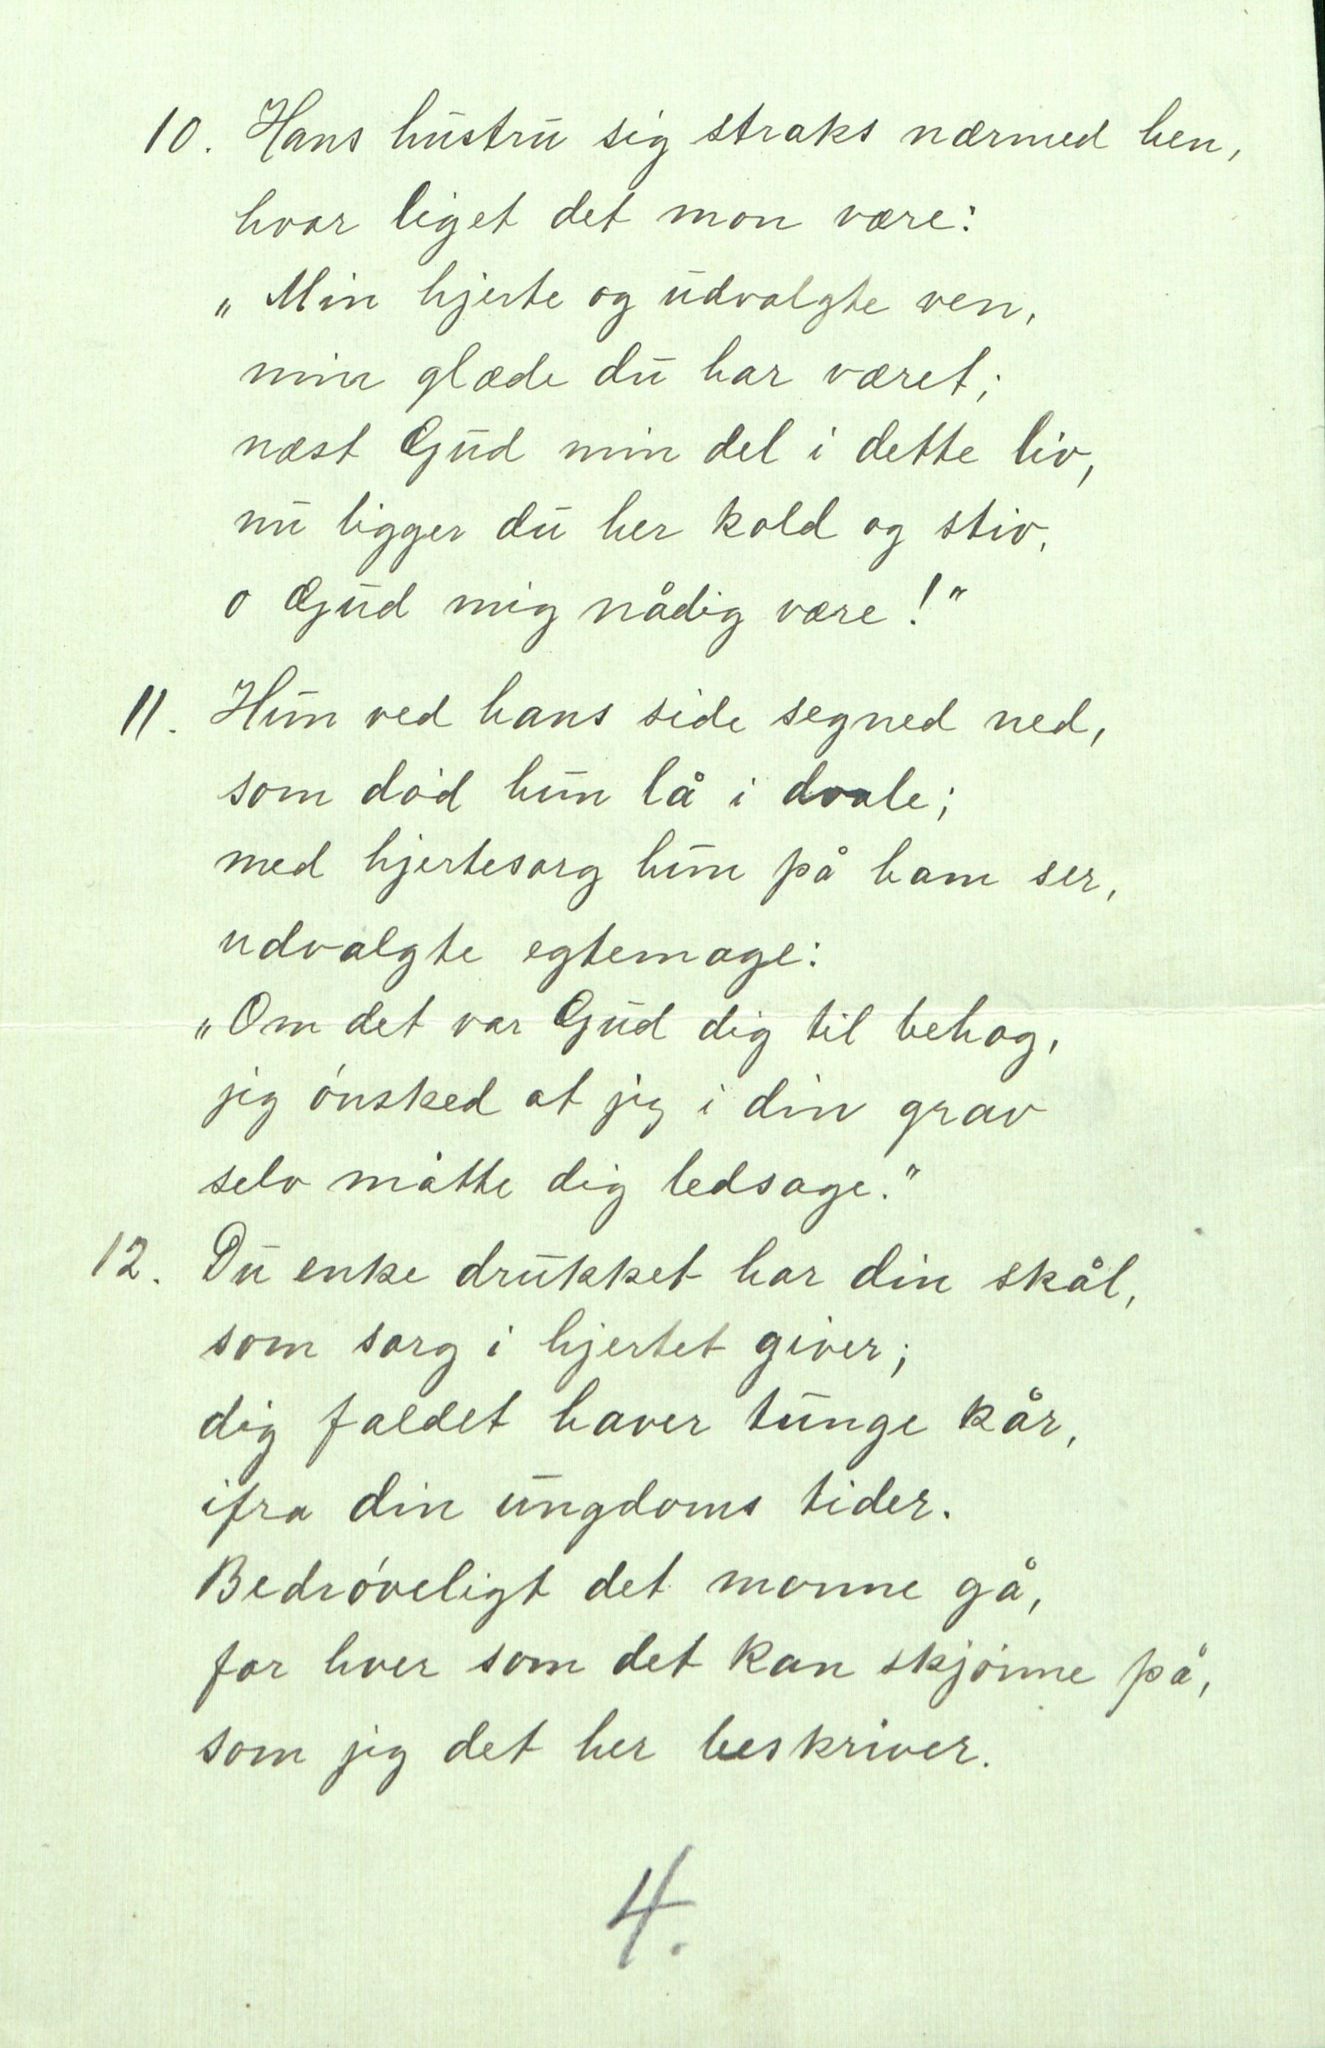 10. Hans hustru sig straks nærmed hen,
hvor liget det mon være:
„Min hjerte og udvalgte ven,
min glæde du har været;
næst Gud min del i dette liv,
nu ligger du her kold og stiv,
o Gud mig nådig være!"
11. Hun ved hans side segned ned,
som död hun lå i dvale;
med hjertesorg hun på ham ser,
udvalgte egtemage:
„Om det var Gud dig til behag,
jig ónsked at jig i din grav
selv måtte dig ledsage."
12. Du enke drukket har din skål,
som sorg i hjertet giver;
dig faldet haver tunge kår,
ifra din ungdoms tider.
Bedróveligt det monne gå,
for hver som det kan skjónne på,
som jig det her beskriver.
4.